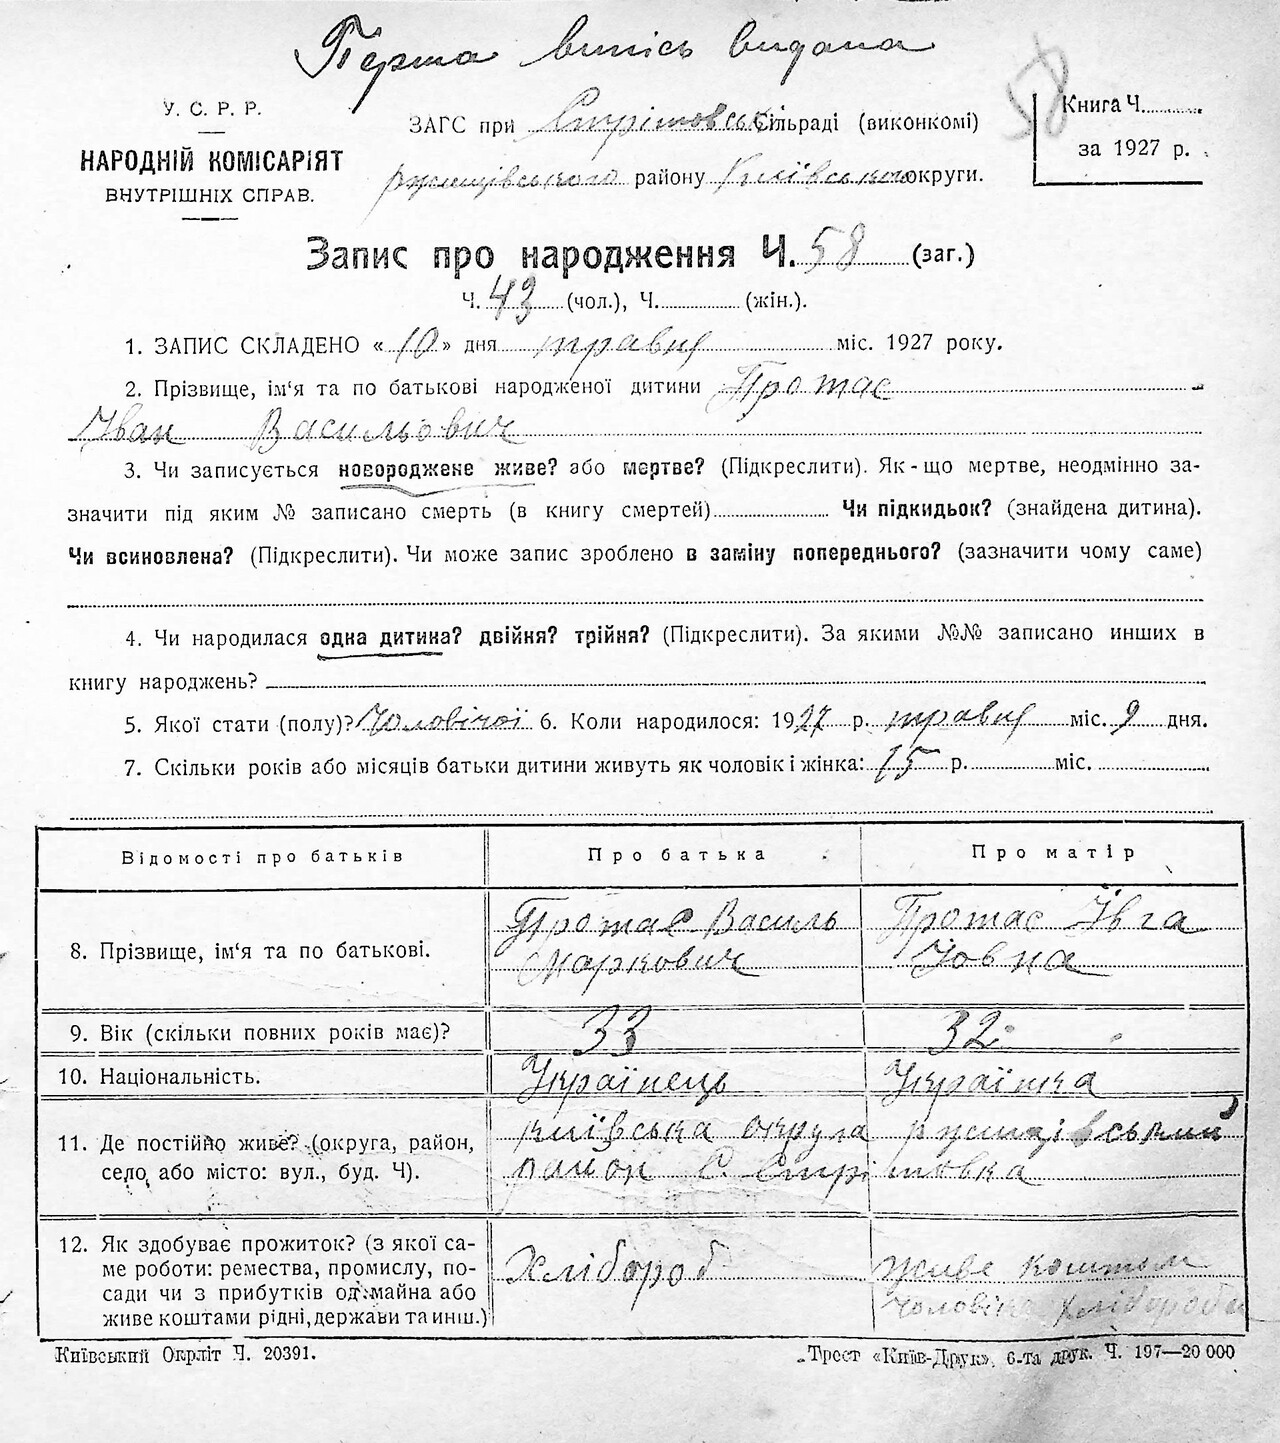 Перша випісь видана
58
У. С. Р. Р.
НАРОДНІЙ КОМІСАРІЯТ
ВНУТРІШНІХ СПРАВ.
ЗАГС при Стрітовськ. Сільраді (виконкомі)
ржищівського району Київського округи.
Книга Ч.
за 1927 р.
Запис про народження Ч. 58 (заг.)
Ч. 43 (чол.), Ч. (жін.).
1. ЗАПИС СКЛАДЕНО «10» дня травня міс. 1927 року.
2. Прізвище, ім‘я та по батькові народженої дитини Протас
Іван Васильович
3. Чи записується новороджене живе? або мертве? (Підкреслити). Як-що мертве, неодмінно за-
значити під яким № записано смерть (в книгу смертей) Чи підкидьок? (знайдена дитина).
Чи всиновлена? (Підкреслити). Чи може запис зроблено в заміну попереднього? (зазначити чому саме)
4. Чи народилася одна дитина? двійня? трійня? (Підкреслити). За якими №№ записано инших в
книгу народжень?
5. Якої стати (полу)? Чоловічої 6. Коли народилося: 1927 р. травня міс. 9 дня.
7. Скільки років або місяців батьки дитини живуть як чоловік і жінка: 15 р. міс.
Відомості про батьків Про батька Про матір
8. Прізвище, ім‘я та по батькові. Протас Василь Протас Івга
Маркович Йовна
9. Вік (скільки повних років має)? 33 32
10. Національність. Українець Українка
11. Де постійно живе? (округа, район, київська округа ржищівський
село, або місто: вул., буд. Ч). район С. Стрітовка
12. Як здобуває прожиток? (з якої са-
ме роботи: ремества, промислу, по- Хлібороб живе коштом
сади чи з прибутків од майна або чоловіка хлібороба
живе коштами рідні, держави та инш.)
Київський Окрліт Ч. 20391.
Трест «Київ-Друк», 6-та друк. Ч. 197—20 000